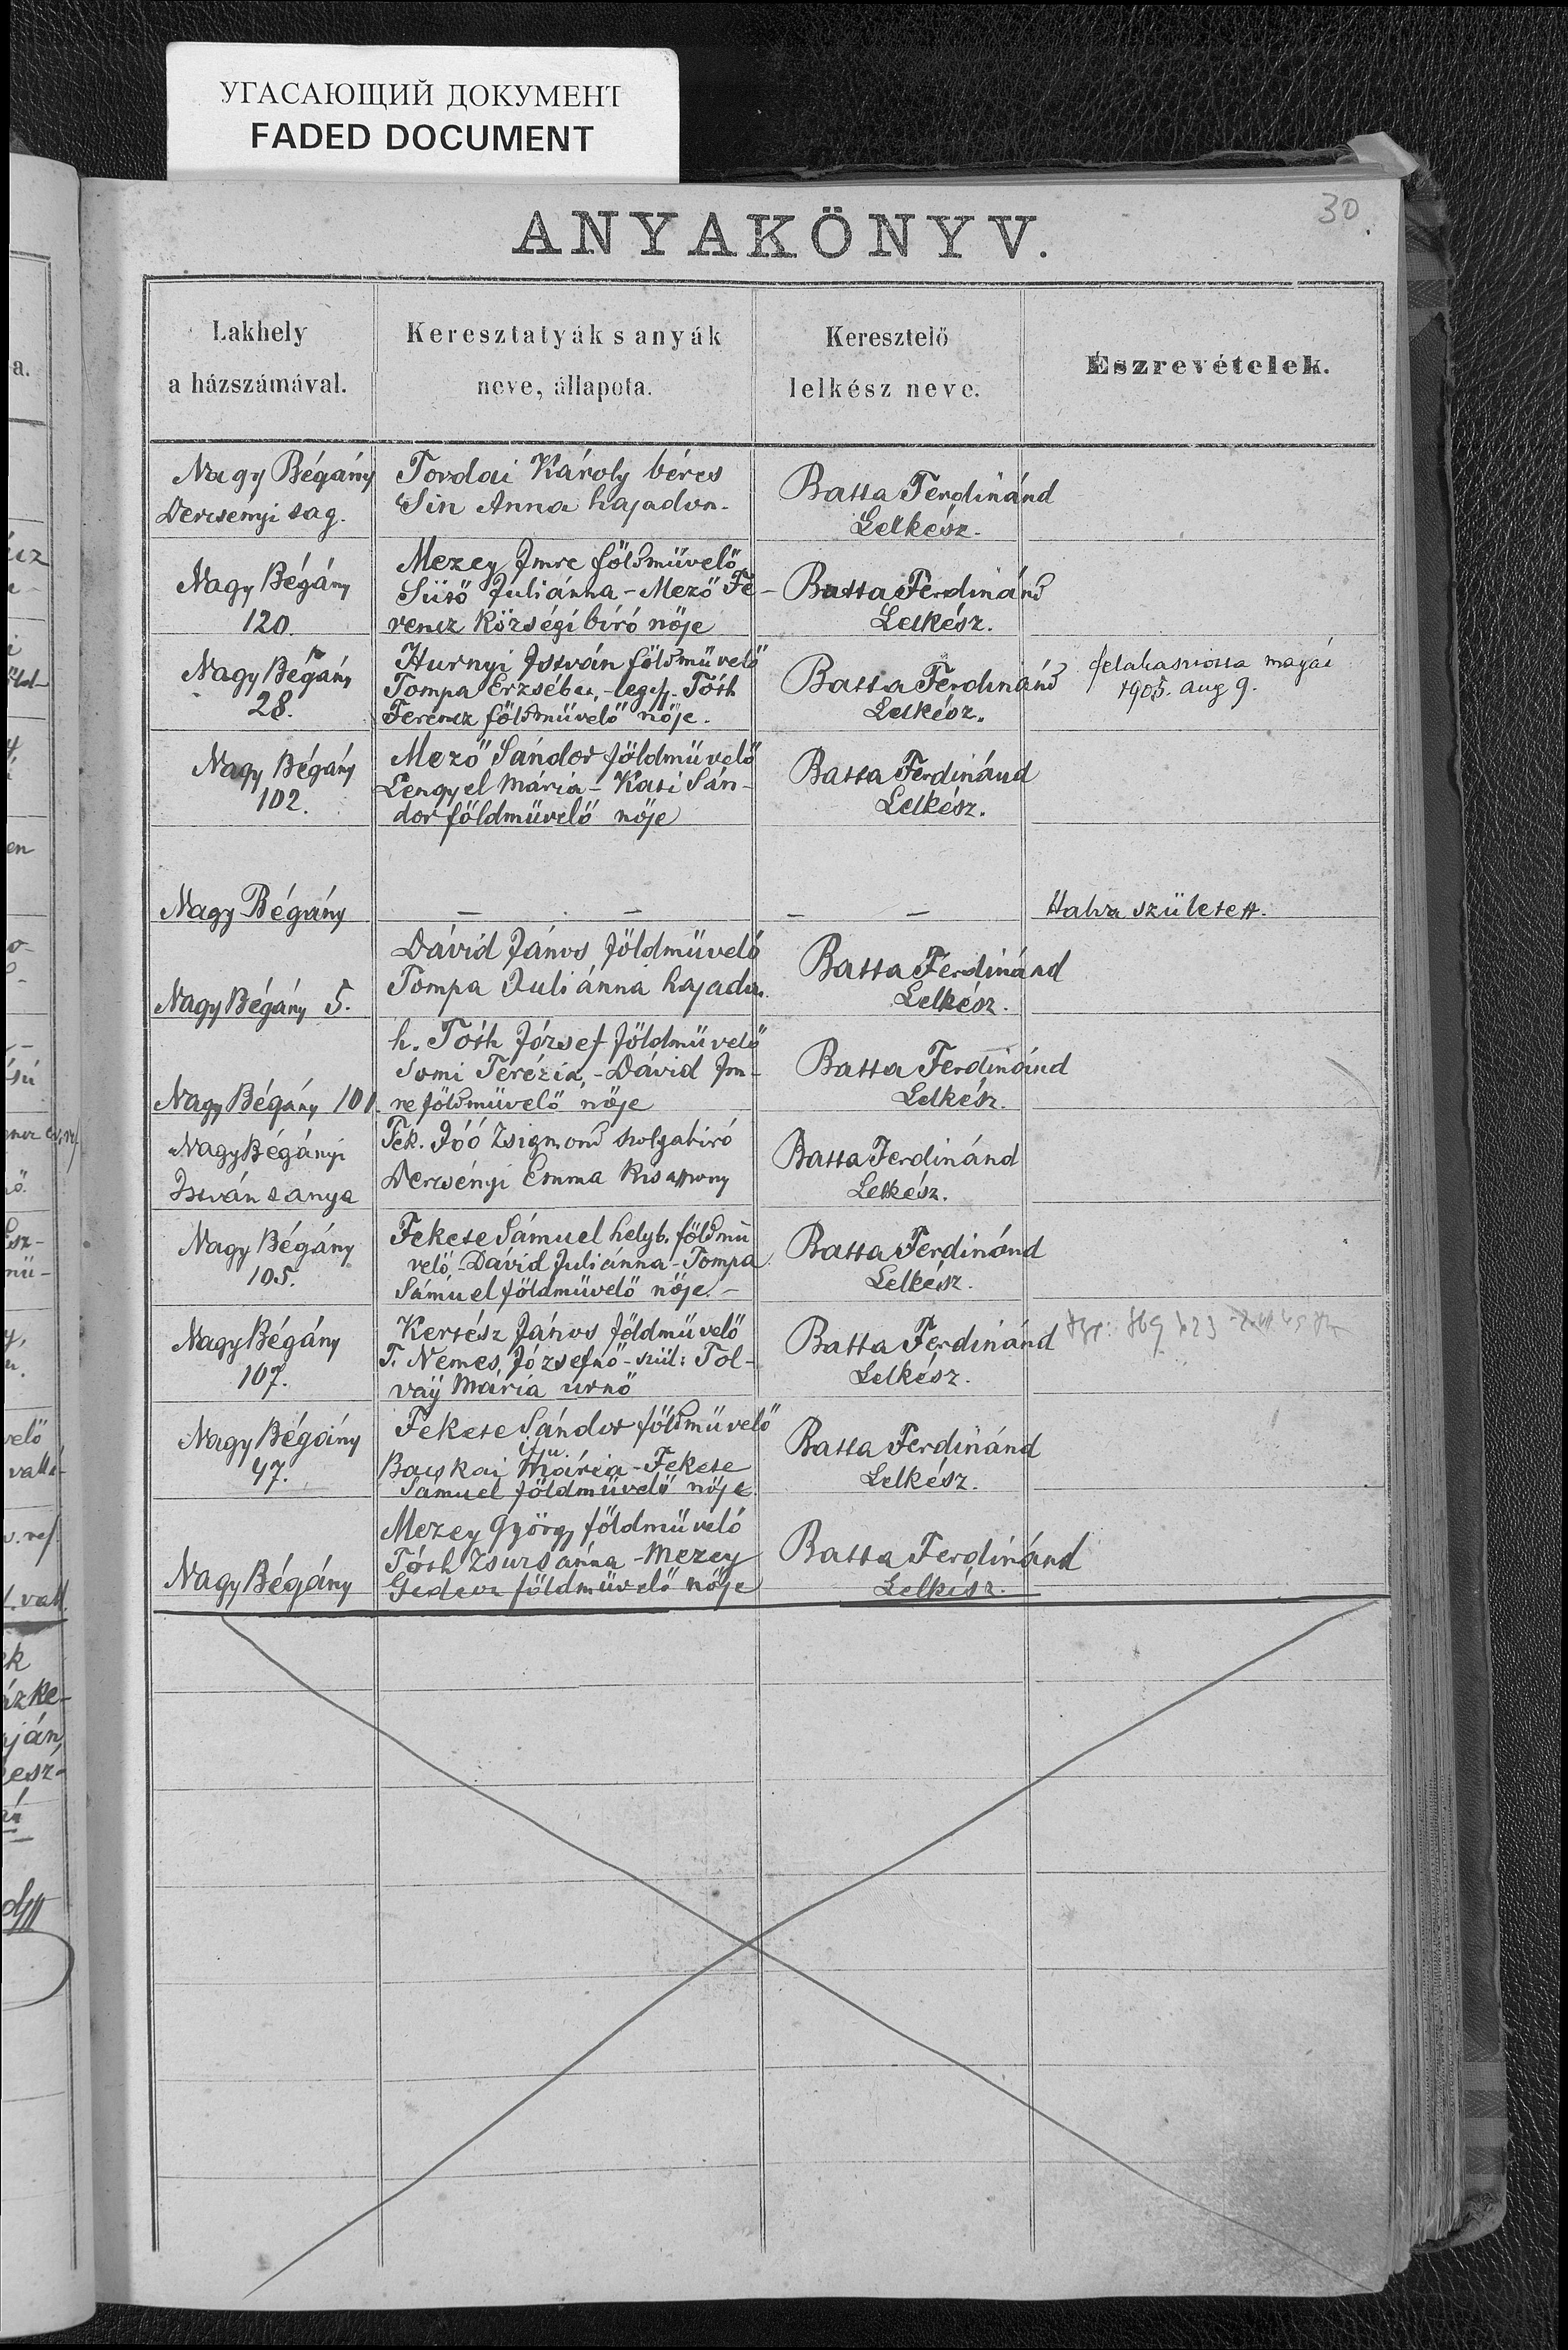 УГАСАЮЩИЙ ДОКУМЕНТ
FADED DOCUMENT
30
ANYAKÖNYV.
Lakhely
a házszámával.
Keresztatyák s anyák
neve, állapota.
Keresztelő
lelkész neve.
Észrevételek.
Nagy Bégány
Dercsenyi tag.
Tordai Károly béres
Sin Anna hajadon.
Batta Ferdinánd
Lelkész.
Nagy Bégány
120.
Mezey Imre földmüvelő
Sütő Juliánna - Mező Fe-
rencz községi bíró nője
Batta Ferdinánd
Lelkész.
Nagy Bégány
28.
Hurnyi István földmüvelő
Tompa Erzsébet, - Tóth
Ferencz földmüvelő nője.
Batta Ferdinánd
Lelkész.
felakasztotta magát
1905. aug 9.
Nagy Bégány
102.
Mező Sándor földmüvelő
Lengyel Mária - Kati Sán-
dor földmüvelő nője
Batta Ferdinánd
Lelkész.
Nagy Bégány
- -
- -
Halva született.
Nagy Bégány 5.
Dávid János földmüvelő
Tompa Juliánna hajadon
Batta Ferdinánd
Lelkész.
Nagy Bégány 101.
h. Tóth József földmüvelő
Somi Terézia, - Dávid Im-
re földmüvelő nője
Batta Ferdinánd
Lelkész.
Nagy Bégányi
István tanya
Tek. Jóó Zsigmond szolgabíró
Dercsényi Emma kisasszony
Batta Ferdinánd
Lelkész.
Nagy Bégány
105.
Fekete Sámuel helyb. földmü
velő Dávid Juliánna - Tompa
Sámuel földmüvelő nője. -
Batta Ferdinánd
Lelkész.
Nagy Bégány
107.
Kertész János földmüvelő
T. Nemes Józsefnő - szül: Tol-
vaÿ Mária úrnő
Batta Ferdinánd
Lelkész.
Nagy Bégány
47.
Fekete Sándor földmüvelő
Bacskai Mária - Fekete
Sámuel földmüvelő nője.
Batta Ferdinánd
Lelkész.
Nagy Bégány
Mezey György földmüvelő
Tóth Zsuzsánna - Mezey
Gedeon földmüvelő nője
Batta Ferdinánd
Lelkész.